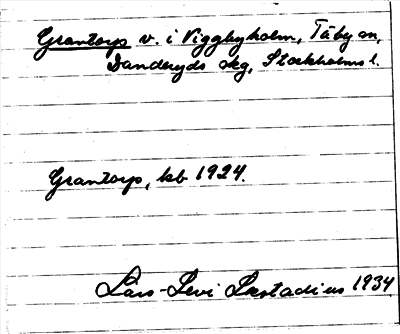 Grantorp v. i Viggbyholm, Täby sn,
Danderyds skg, Stockholms l.
Grantorp, kb 1924.
Lars-Levi Læstadius 1934